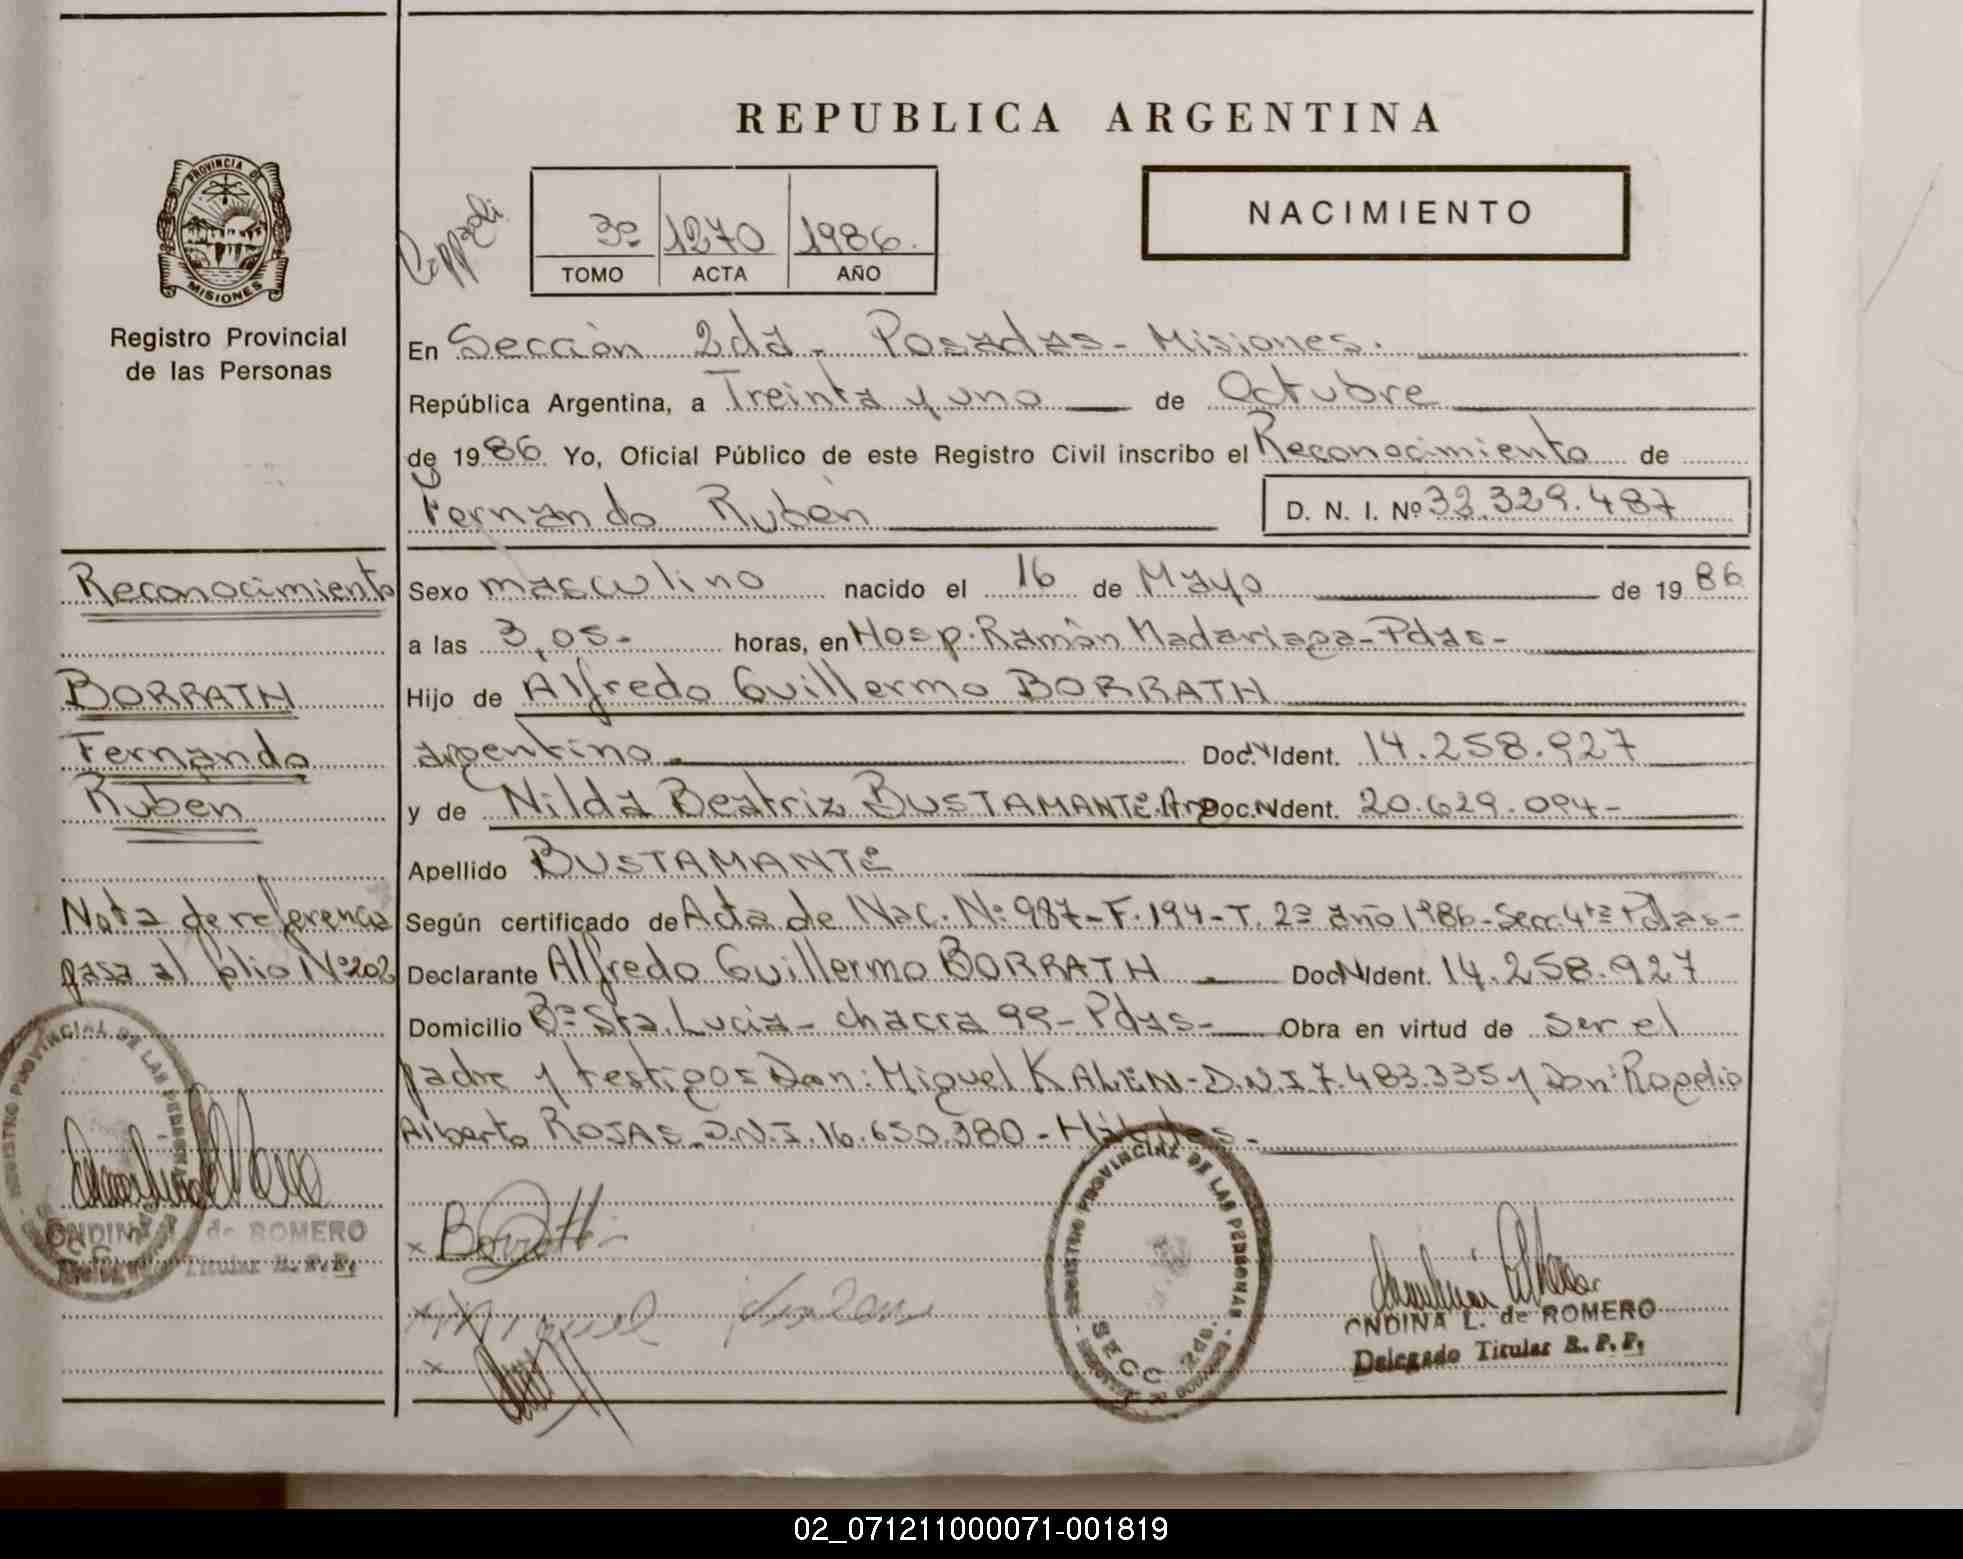 REPUBLICA ARGENTINA
PROVINCIA DE
MISIONES
Registro Provincial
de las Personas
3º 1270 1986.
TOMO ACTA AÑO
NACIMIENTO
En Sección 2da - Posadas - Misiones.
República Argentina, a Treinta y uno de Octubre
de 1986 Yo, Oficial Público de este Registro Civil inscribo el Reconocimiento de
Fernando Rubén D. N. I. Nº 32.329.487
Reconocimiento
BORRATH
Fernando
Ruben
Nota de referencia
pasa al folio Nº 202
Sexo masculino nacido el 16 de Mayo de 1986
a las 3,05- horas, en Hosp. Ramón Madariaga - Pdas -
Hijo de Alfredo Guillermo BORRATH
argentino Doc. Ident. 14.258.927
y de Nilda Beatriz BUSTAMANTE. Arg Doc. Ident. 20.629.094-
Apellido BUSTAMANTE
Según certificado de Acta de Nac. Nº 987 - F. 194 - T. 2º año 1986 - Secc. 4ta Pdas -
Declarante Alfredo Guillermo BORRATH Doc Ident. 14.258.927
Domicilio Bº Sta. Lucia - chacra 99 - Pdas - Obra en virtud de ser el
padre y testigos Don: Miguel KALEN - D.N.I 7.483.335 y Don: Rogelio
Alberto ROJAS D.N.I. 16.650.980 - Hábiles -
REGISTRO PROVINCIAL DE LAS PERSONAS
de ROMERO
Titular R. P. P.
Borrath
Miguel
REGISTRO PROVINCIAL DE LAS PERSONAS
SECC 2da.
ONDINA L. de ROMERO
Delegado Titular R. P. P.
02_071211000071-001819